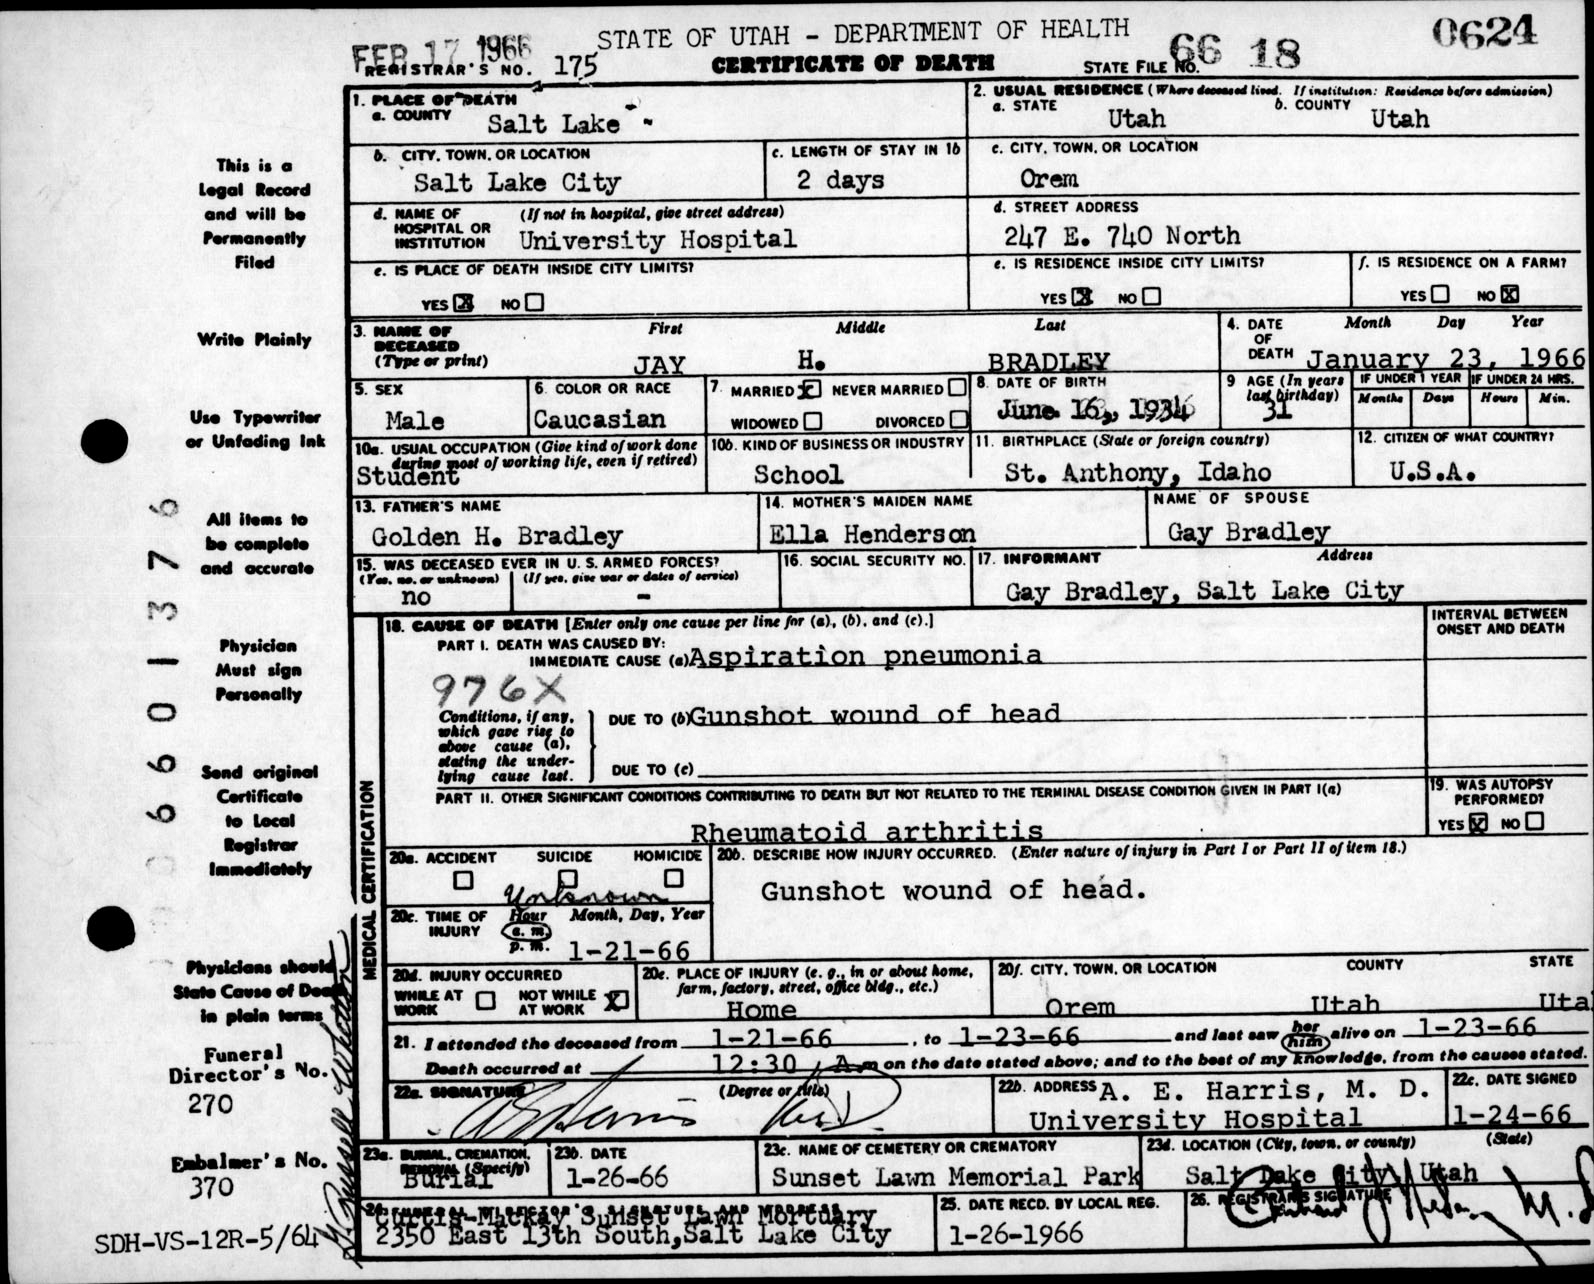 FEB 17 1966
STATE OF UTAH - DEPARTMENT OF HEALTH
0624
REGISTRAR'S NO. 175
CERTIFICATE OF DEATH
STATE FILE NO. 66 18
1. PLACE OF DEATH
a. COUNTY Salt Lake
2. USUAL RESIDENCE (Where deceased lived. If institution: Residence before admission)
a. STATE Utah b. COUNTY Utah
b. CITY, TOWN, OR LOCATION Salt Lake City
c. LENGTH OF STAY IN 1b 2 days
c. CITY, TOWN, OR LOCATION Orem
d. NAME OF HOSPITAL OR INSTITUTION (If not in hospital, give street address) University Hospital
d. STREET ADDRESS 247 E. 740 North
e. IS PLACE OF DEATH INSIDE CITY LIMITS? YES X NO
e. IS RESIDENCE INSIDE CITY LIMITS? YES X NO
f. IS RESIDENCE ON A FARM? YES NO X
3. NAME OF DECEASED (Type or print)
First Middle Last
JAY H. BRADLEY
4. DATE OF DEATH Month Day Year
January 23, 1966
5. SEX Male
6. COLOR OR RACE Caucasian
7. MARRIED X NEVER MARRIED
WIDOWED DIVORCED
8. DATE OF BIRTH June 16, 1934
9 AGE (In years last birthday) 31
IF UNDER 1 YEAR Months Days
IF UNDER 24 HRS. Hours Min.
10a. USUAL OCCUPATION (Give kind of work done during most of working life, even if retired) Student
10b. KIND OF BUSINESS OR INDUSTRY School
11. BIRTHPLACE (State or foreign country) St. Anthony, Idaho
12. CITIZEN OF WHAT COUNTRY? U.S.A.
13. FATHER'S NAME Golden H. Bradley
14. MOTHER'S MAIDEN NAME Ella Henderson
NAME OF SPOUSE Gay Bradley
15. WAS DECEASED EVER IN U. S. ARMED FORCES?
(Yes, no, or unknown) (If yes, give war or dates of service)
no -
16. SOCIAL SECURITY NO.
17. INFORMANT Address
Gay Bradley, Salt Lake City
MEDICAL CERTIFICATION
18. CAUSE OF DEATH [Enter only one cause per line for (a), (b), and (c).]
INTERVAL BETWEEN ONSET AND DEATH
PART I. DEATH WAS CAUSED BY:
IMMEDIATE CAUSE (a) Aspiration pneumonia
976X
Conditions, if any, which gave rise to above cause (a), stating the underlying cause last.
DUE TO (b) Gunshot wound of head
DUE TO (c)
PART II. OTHER SIGNIFICANT CONDITIONS CONTRIBUTING TO DEATH BUT NOT RELATED TO THE TERMINAL DISEASE CONDITION GIVEN IN PART I(a)
Rheumatoid arthritis
19. WAS AUTOPSY PERFORMED?
YES X NO
20a. ACCIDENT SUICIDE HOMICIDE
Unknown
20b. DESCRIBE HOW INJURY OCCURRED. (Enter nature of injury in Part I or Part II of item 18.)
Gunshot wound of head.
20c. TIME OF INJURY Hour a. m. p. m. Month, Day, Year
1-21-66
20d. INJURY OCCURRED
WHILE AT WORK NOT WHILE AT WORK X
20e. PLACE OF INJURY (e. g., in or about home, farm, factory, street, office bldg., etc.)
Home
20f. CITY, TOWN, OR LOCATION COUNTY STATE
Orem Utah Uta
21. I attended the deceased from 1-21-66, to 1-23-66 and last saw her him alive on 1-23-66
Death occurred at 12:30 A m on the date stated above; and to the best of my knowledge, from the causes stated.
22a. SIGNATURE (Degree or title)
A E Harris M D
22b. ADDRESS A. E. Harris, M. D.
University Hospital
22c. DATE SIGNED
1-24-66
23a. BURIAL, CREMATION, REMOVAL (Specify) Burial
23b. DATE 1-26-66
23c. NAME OF CEMETERY OR CREMATORY
Sunset Lawn Memorial Park
23d. LOCATION (City, town, or county) (State)
Salt Lake City, Utah
24. FUNERAL DIRECTOR'S SIGNATURE AND ADDRESS
Curtis-Mackay Sunset Lawn Mortuary
2350 East 13th South, Salt Lake City
25. DATE RECD. BY LOCAL REG.
1-26-1966
26. REGISTRAR'S SIGNATURE
This is a
Legal Record
and will be
Permanently
Filed
Write Plainly
Use Typewriter
or Unfading Ink
All items to
be complete
and accurate
Physician
Must sign
Personally
Send original
Certificate
to Local
Registrar
Immediately
Physicians should
State Cause of Dea
in plain terms
Funeral
Director's No.
270
Embalmer's No.
370
SDH-VS-12R-5/64
6601376